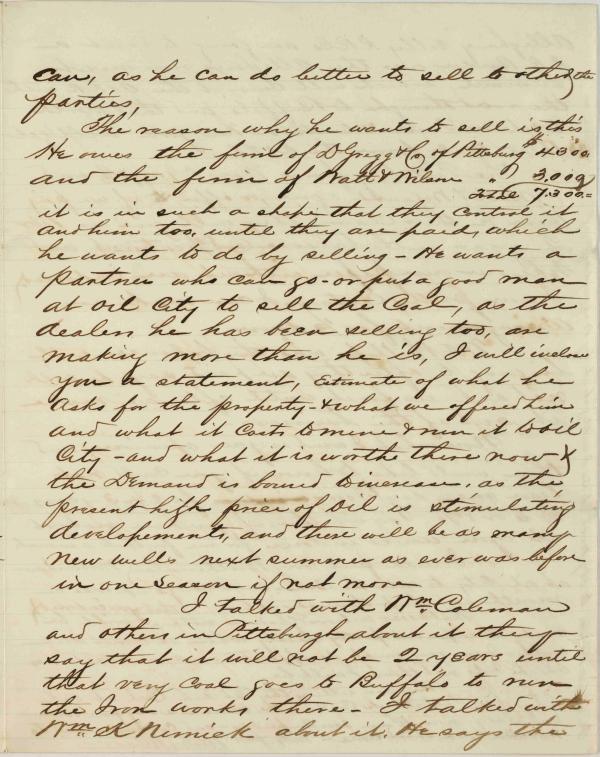 can, as he can do better to sell to other the
parties,
The reason why he wants to sell is this
He owes the firm of D Gregg & Co of Pittsburg $4300.
and the firm of Watt & Wilson " 3,000
Total 7.300.=
it is in such a shape that they control it
and him too, until they are paid, which
he wants to do by selling - He wants a
partner who can go - or put a good man
at Oil City to sell the Coal, as the
dealers he has been selling too, are
making more than he is, I will inclose
you a statement, Estimate of what he
asks for the property - & what we offered him
and what it Costs to mine & run it to Oil
City - and what it is worth there now &
the Demand is bound to increase, as the
present high price of Oil is stimulating
developements, and there will be as many
new wells next summer as ever was before
in one Season if not more
I talked with Wm. Coleman
and others in Pittsburgh about it they
say that it will not be 2 years until
that very Coal goes to Buffalo to run
the Iron works there - I talked with
Wm. K Nimick about it. He says the